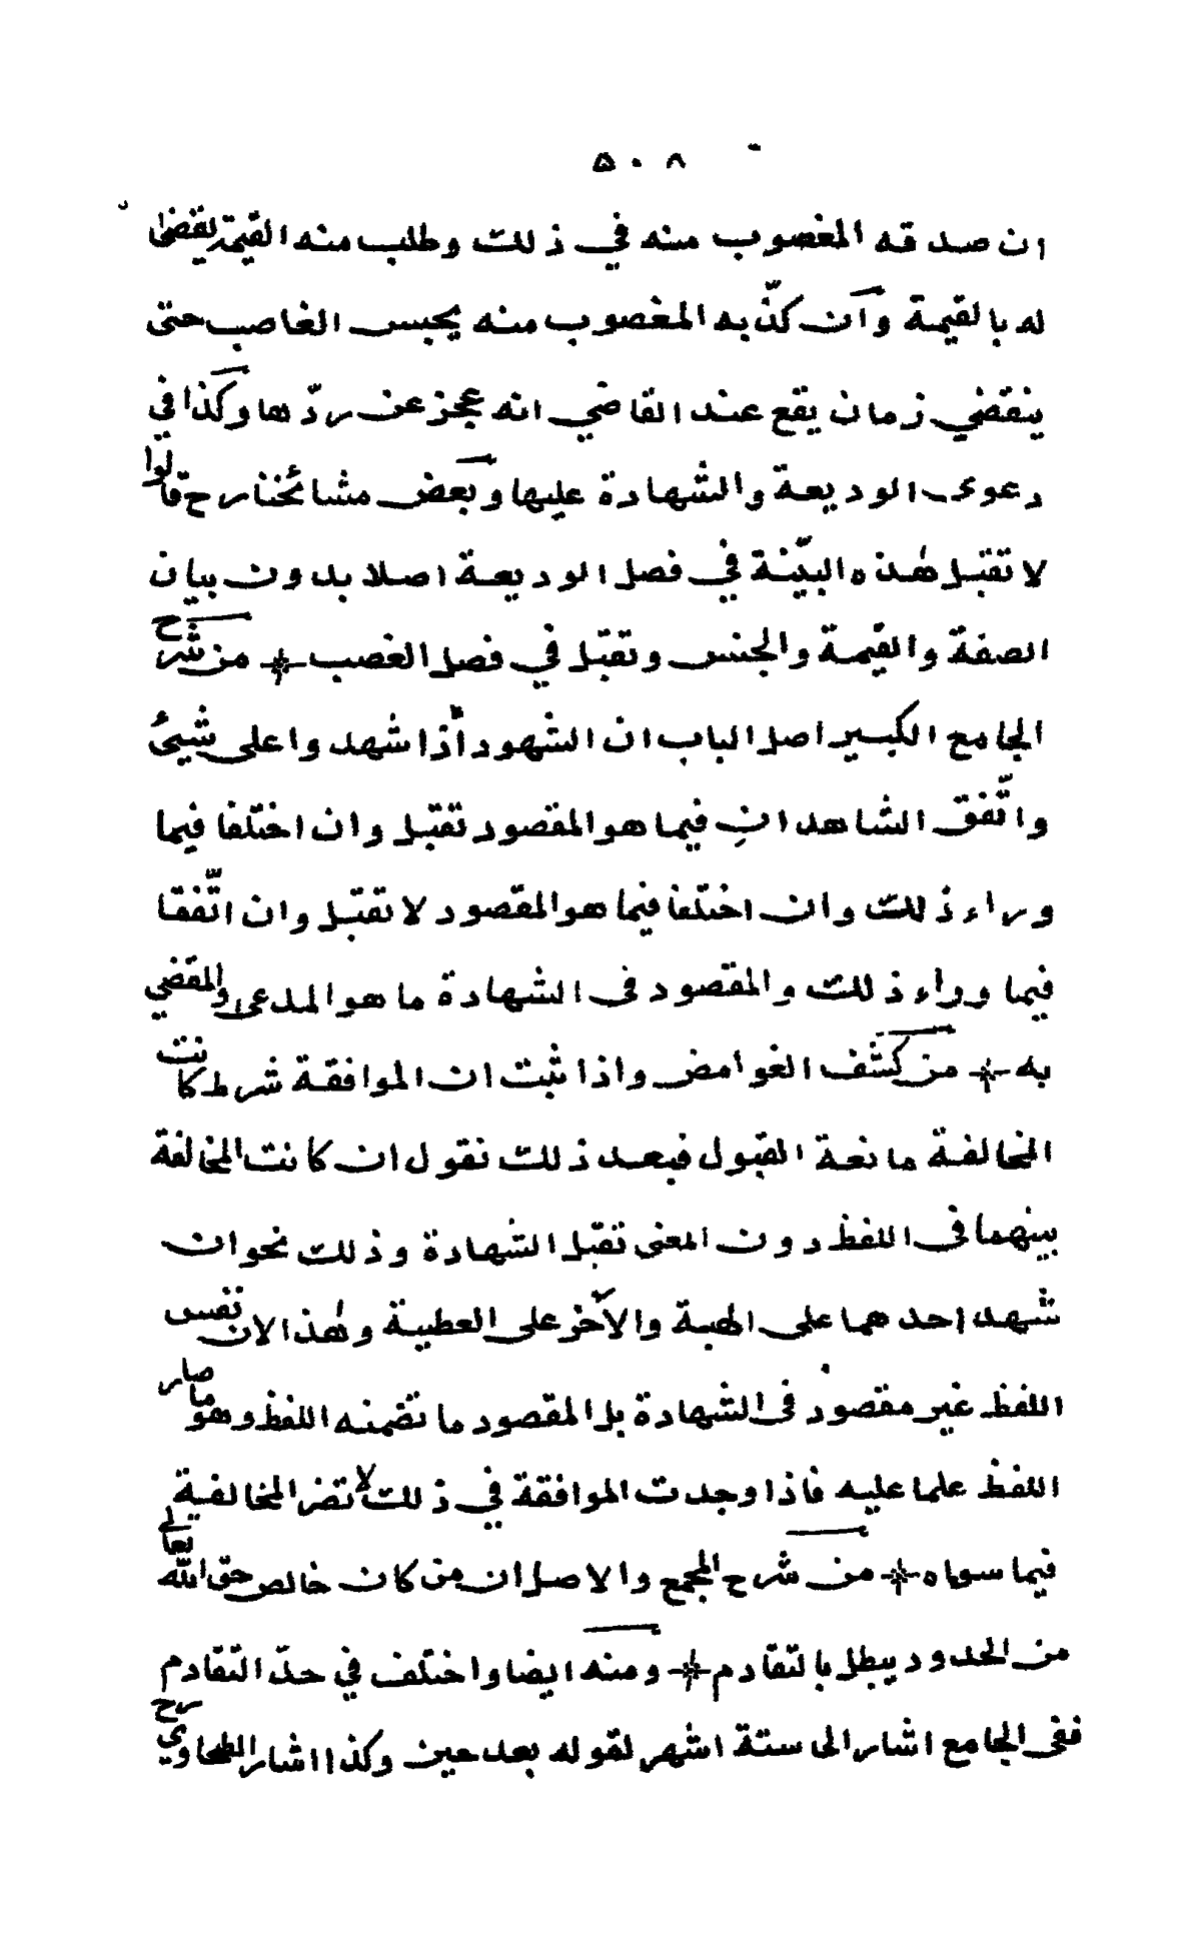 ٥٠٨
ان صدقه المغصوب منه في ذلك وطلب منه القيمة يقضى
له بالقيمة وان كذّبه المغصوب منه يحبس الغاصب حتى
ينقضي زمان يقع عند القاضي انه عجز عن ردّها وكذا في
دعوى الوديعة والشهادة عليها وبعض مشائخنا رح قالوا
لا تقبل هٰذه البيّنة في فصل الوديعة اصلا بدون بيان
الصفة والقيمة والجنس وتقبل في فصل الغصب * من شرح
الجامع الكبير اصل الباب ان الشهود اذا شهدوا على شيئ
واتّفق الشاهدانِ فيما هو المقصود تقبل وان اختلفا فيما
وراء ذلك وان اختلفا فيما هو المقصود لا تقبل وان اتّفقا
فيما وراء ذلك والمقصود فى الشهادة ما هو المدعى والمقضي
به * من كشف الغوامض واذا ثبت ان الموافقة شرط كانت
المخالفة مانعة القبول فبعد ذلك نقول ان كانت المخالفة
بينهما فى اللفظ دون المعنى تقبل الشهادة وذلك نحو ان
شهد احدهما على الهبة والآخر على العطية وهٰذا لان نفس
اللفظ غير مقصود فى الشهادة بل المقصود ما تضمنه اللفظ وهو ما صار
اللفظ علما عليه فاذا وجدت الموافقة في ذلك لا تضر المخالفية
فيما سواه * من شرح المجمع والاصل ان من كان خالص حق الله تعالى
من الحدود يبطل بالتقادم * ومنه ايضا واختلف في حدّ التقادم
ففى الجامع اشار الى ستة اشهر لقوله بعد حين وكذا اشار الطحاوي رح